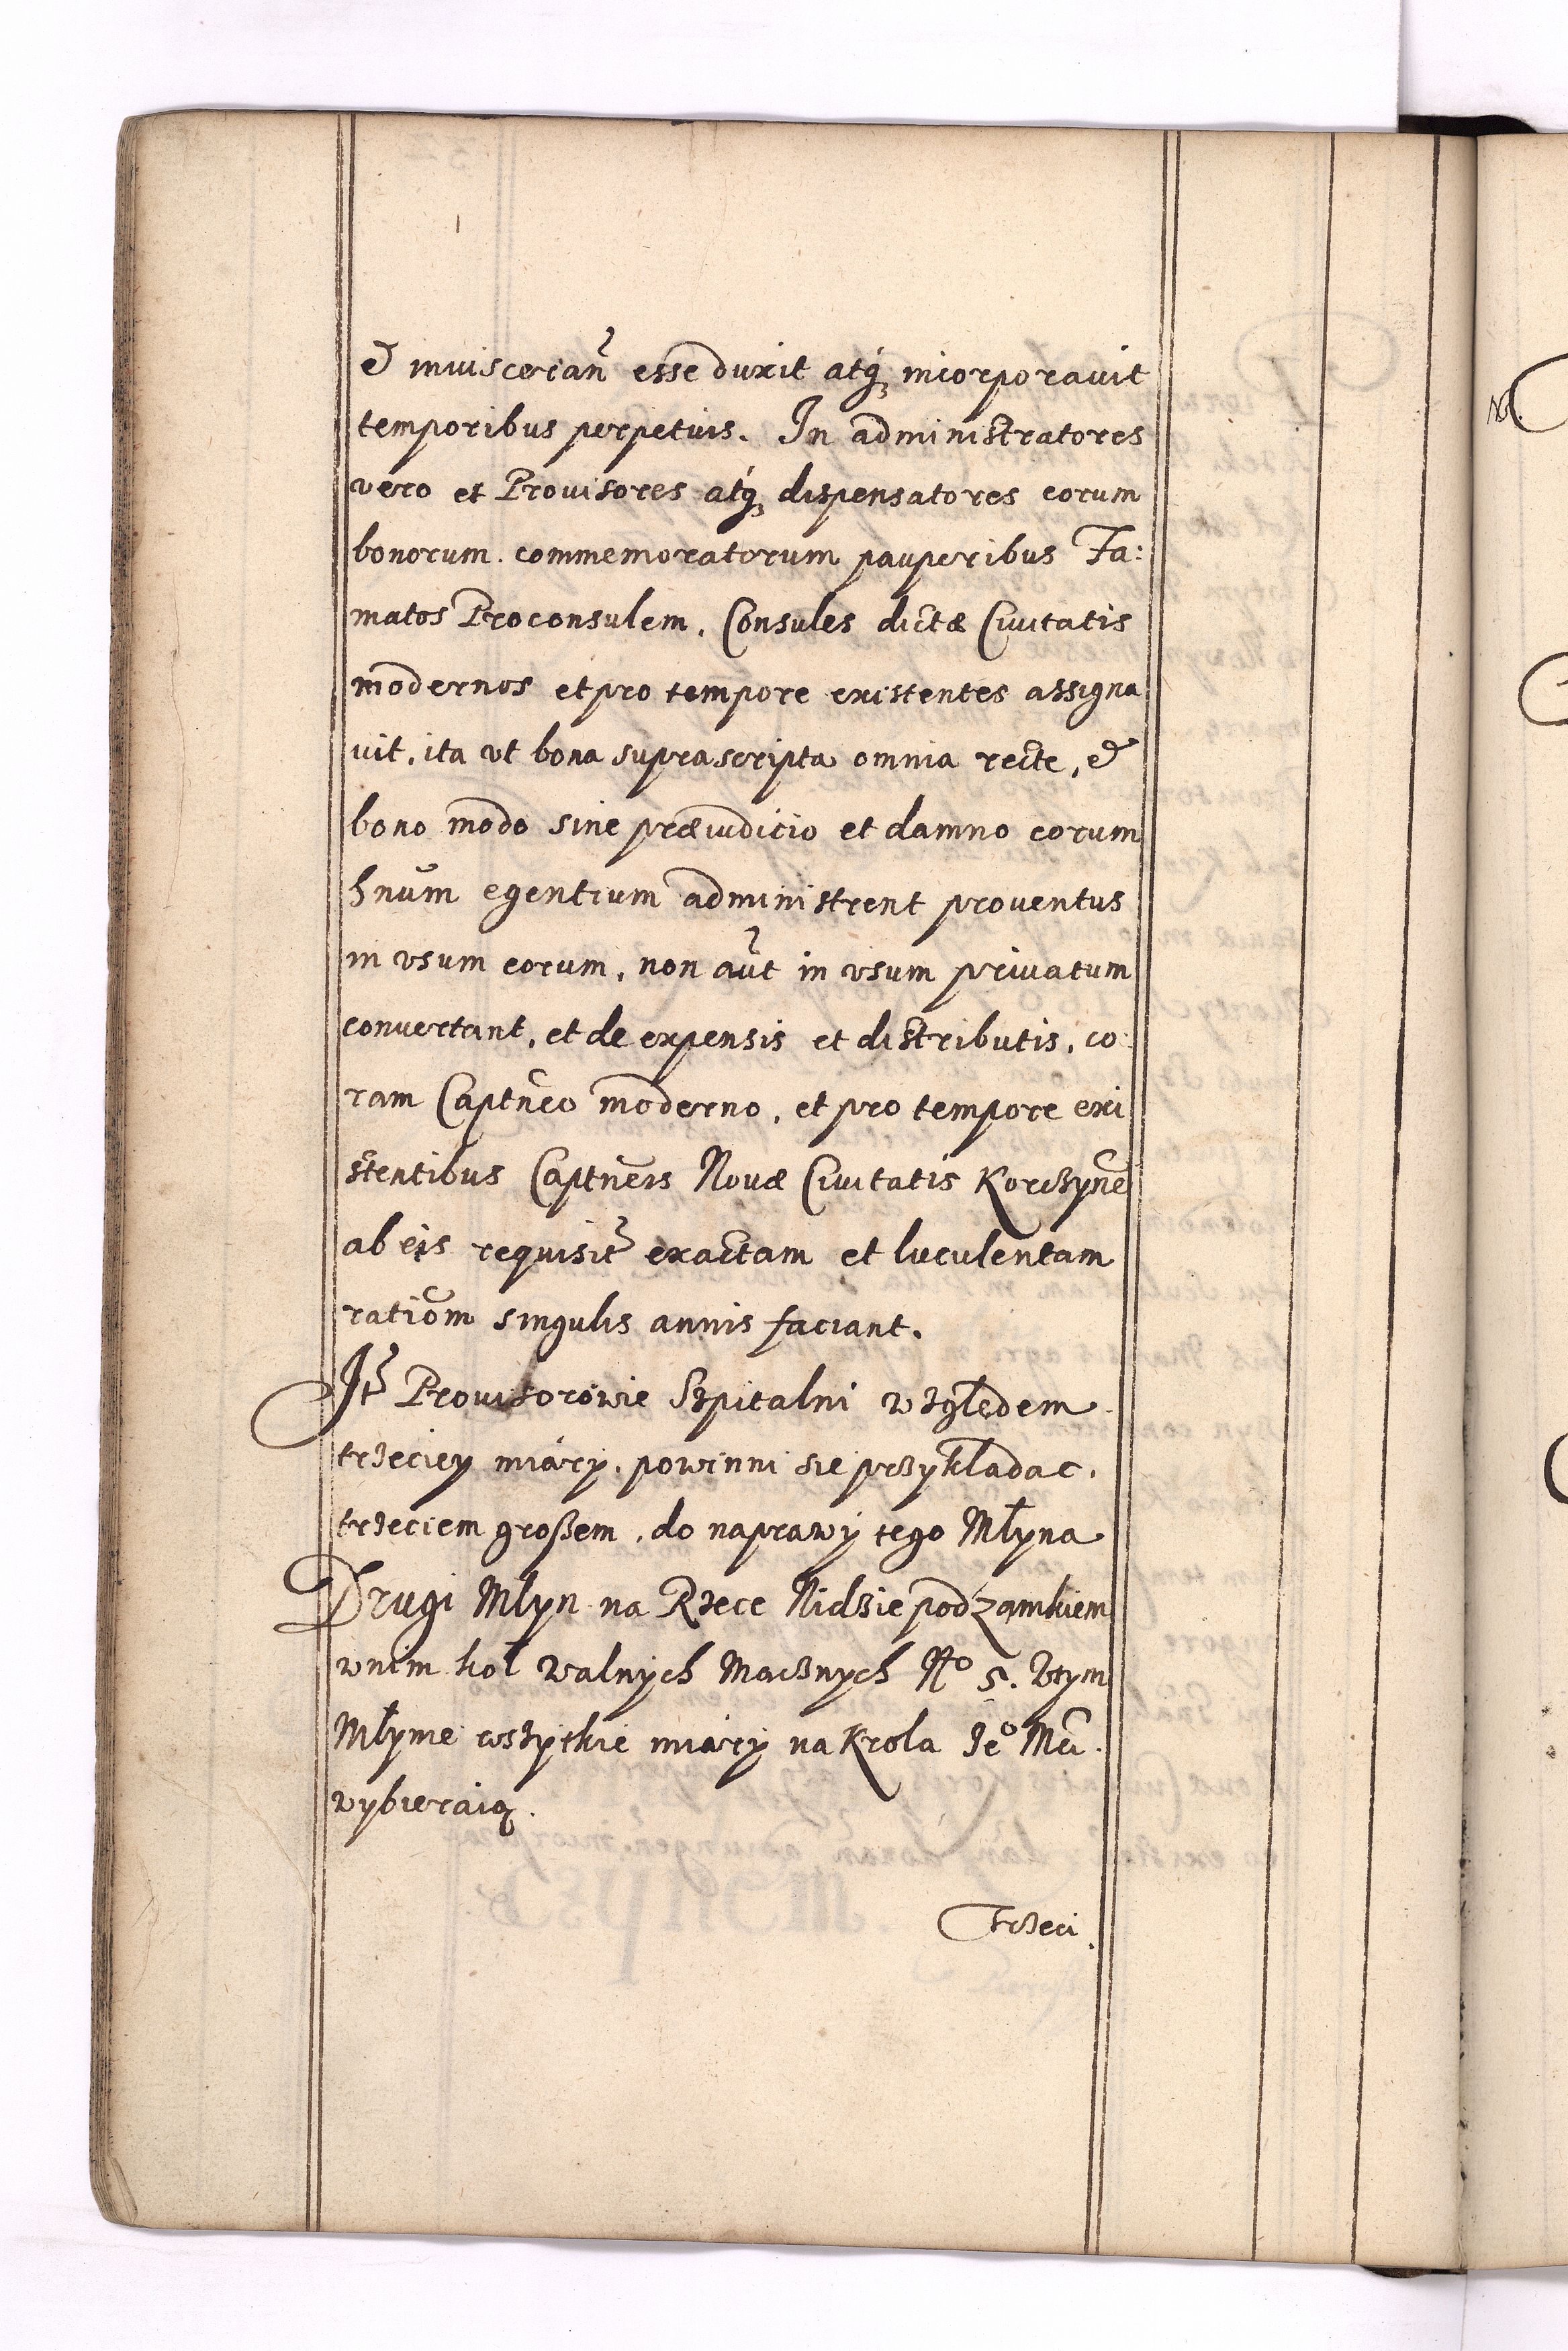 et inuiscerañ esse duxit atq₃ incorporauit
temporibus perpetuis. In administratores
vero et Prouisores atq₃ dispensatores eorum
bonorum. commemoratorum pauperibus Fa:
matos Proconsulem, Consules dictæ Ciuitatis
modernos et pro tempore existentes assigna
uit, ita vt bona suprascripta omnia recte, et
bono modo sine præiudicio et damno eorum
hnum̃ egentium administrent prouentus
in vsum eorum, non aũt in vsum priuatum
conuertant, et de expensis et distributis, co:
ram Captñeo moderno, et pro tempore exi
stentibus Captñeis Nouæ Ciuitatis Korczyñe
ab eis requisit̃ exactam et luculentam
ratiõm singulis annis faciant.
It̃ Prouisorowie Szpitalni względem
trzeciey miáry, powinni sie przykladac,
trzeciem großem, do naprawy tego Młyna
Drugi Młyn na Rzece Nidzie pod zamkiem
wnim koł walnych Mącznych Nº 5. Wtym
Młynie wszytkie miáry na Krola Jeº Mci.
wybieraią.
Trzeci